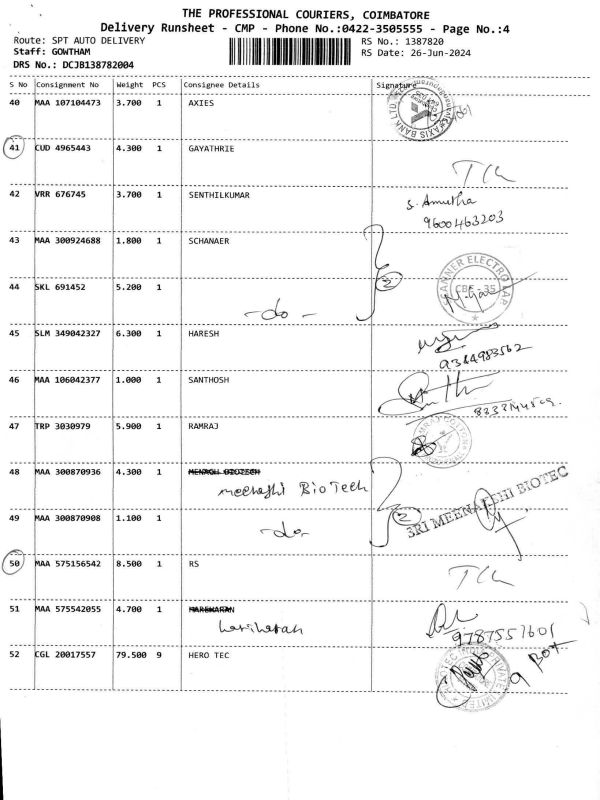 THE PROFESSIONAL COURIERS, COIMBATORE
Delivery Runsheet - CMP - Phone No.:0422-3505555 - Page No.:4
Route: SPT AUTO DELIVERY
RS No.: 1387820
Staff: GOWTHAM
RS Date: 26-Jun-2024
DRS No.: DCJB138782004
S No Consignment No Weight PCS Consignee Details Signature
40 MAA 107104473 3.700 1 AXIES
AXIS BANK LTD
41 CUD 4965443 4.300 1 GAYATHRIE
42 VRR 676745 3.700 1 SENTHILKUMAR
S. Amutha
9600463203
43 MAA 300924688 1.800 1 SCHANAER
44 SKL 691452 5.200 1
-do-
2
CBE - 35
45 SLM 349042327 6.300 1 HARESH
9344983562
46 MAA 106042377 1.000 1 SANTHOSH
47 TRP 3030979 5.900 1 RAMRAJ
48 MAA 300870936 4.300 1
meenashi BioTech
49 MAA 300870908 1.100 1
-do-
2
SRI MEENAKSHI BIOTEC
50 MAA 575156542 8.500 1 RS
51 MAA 575542055 4.700 1 MAREHARAN
hariharan
9787557601
52 CGL 20017557 79.500 9 HERO TEC
9 Box